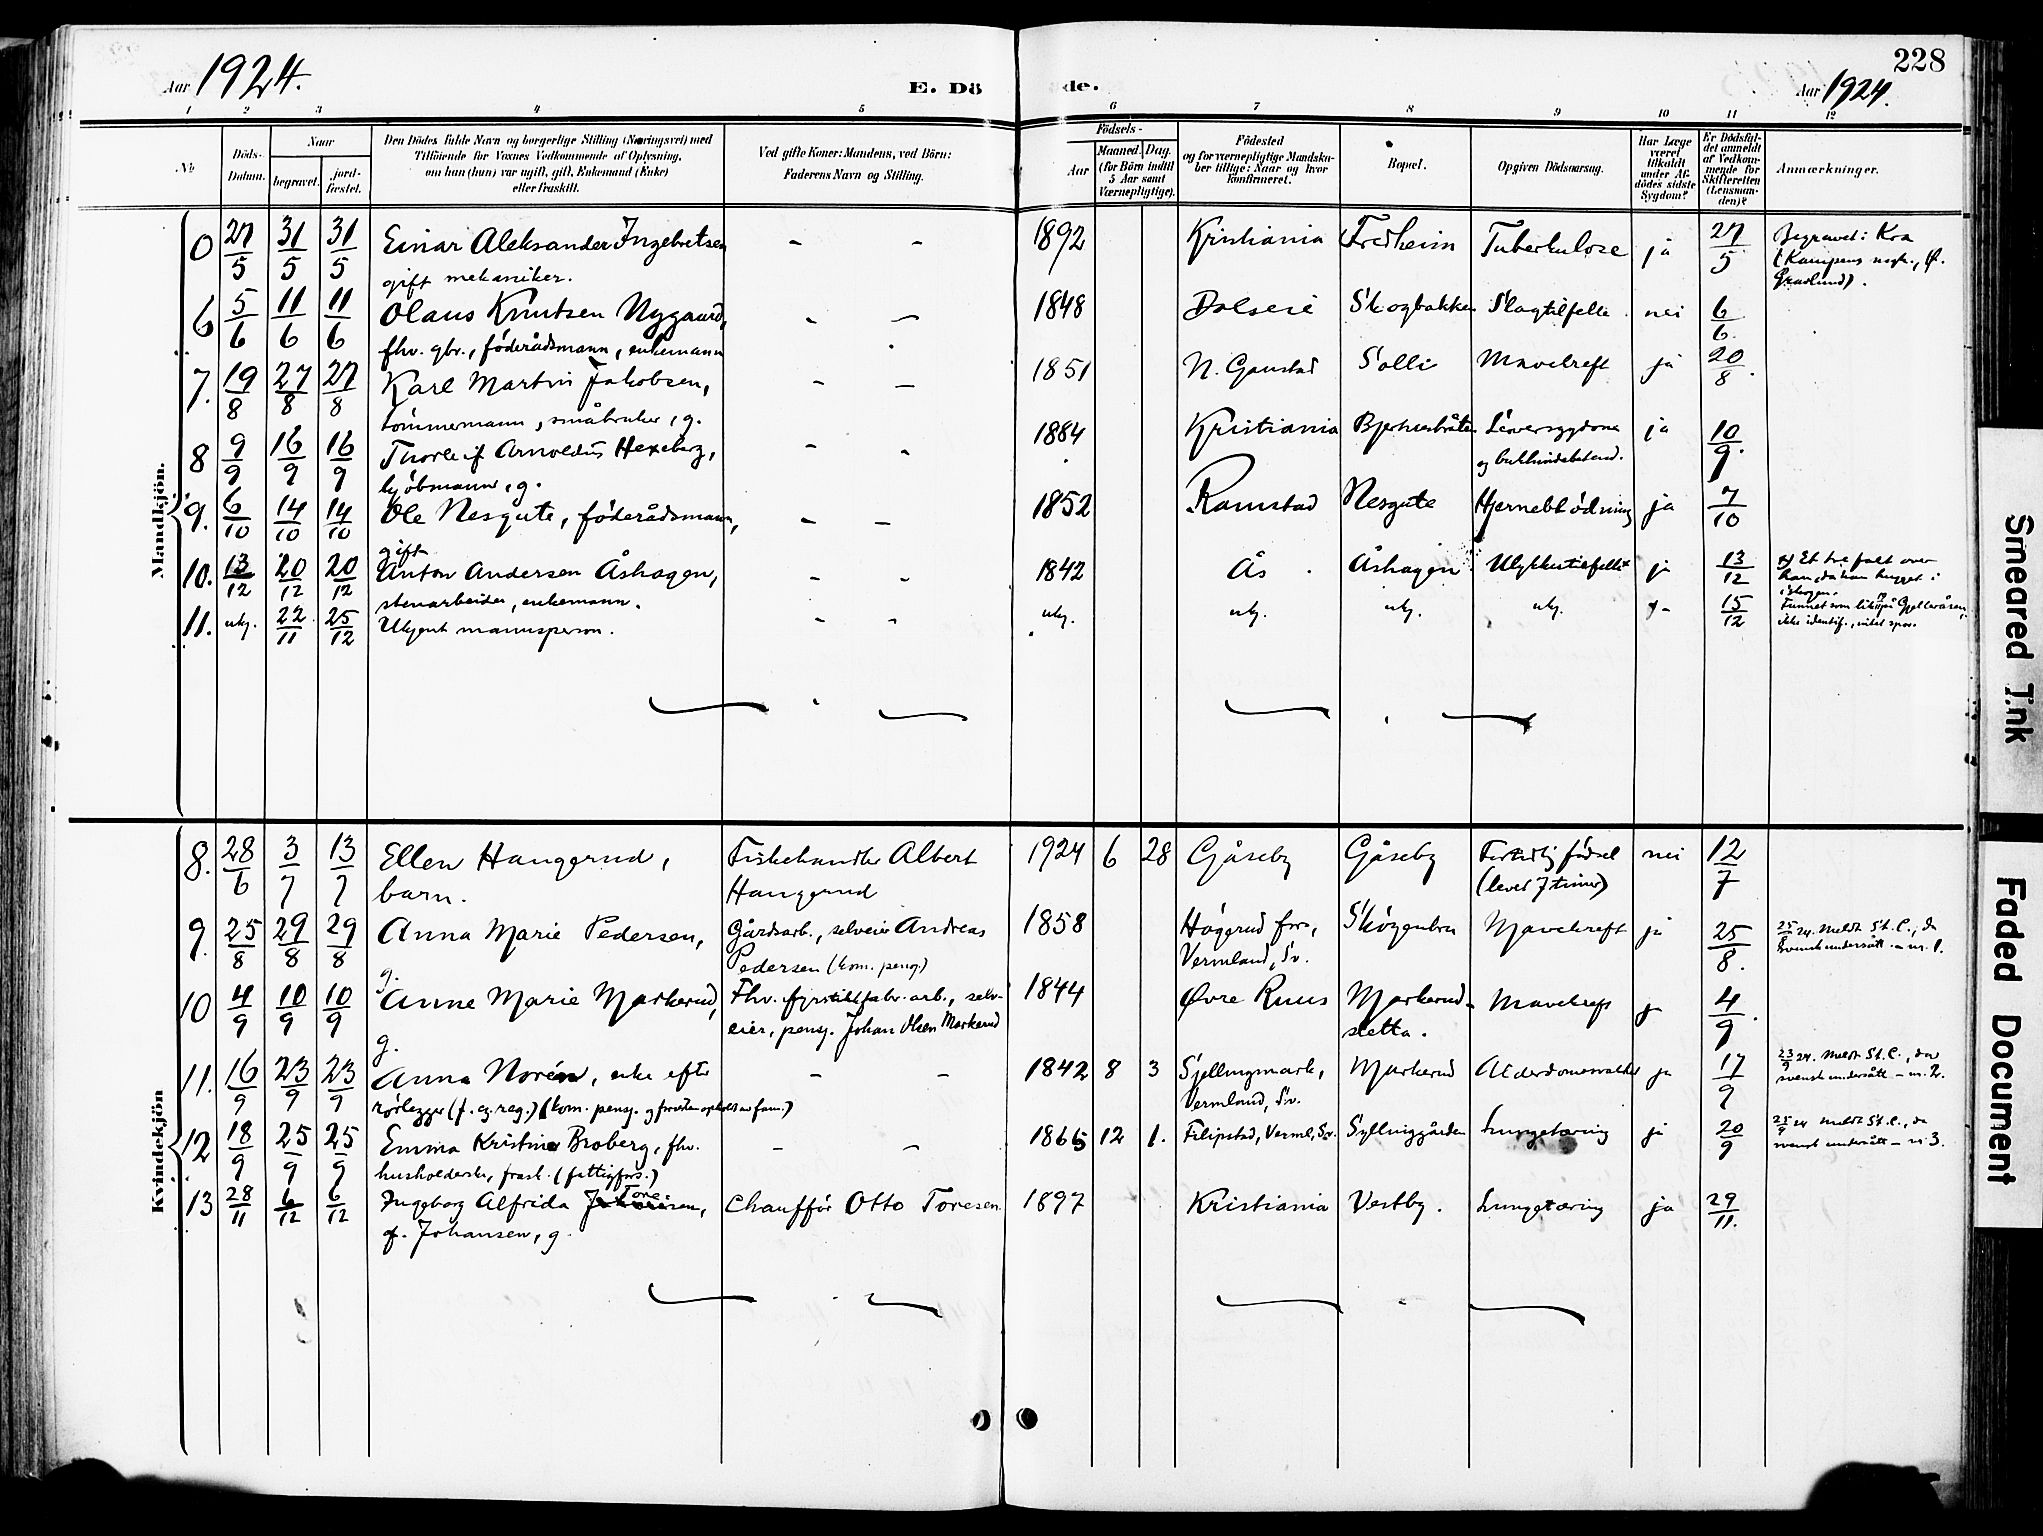 228
Aar 1924. E. Dö de. Aar 1924.
1 2 3 4 5 6 7 8 9 10 11 12
No. Döds-Datum. Naar begravet. jordfæstet. Den Dödes fulde Navn og borgerlige Stilling (Næringsvei) med
Tilföiende for Voxnes Vedkommende af Oplysning,
om han (hun) var ugift, gift, Enkemand (Enke)
eller fraskilt.
Ved gifte Koner: Mandens, ved Börn:
Faderens Navn og Stilling.
Födsels-
Aar Maaned. Dag.
(for Börn indtil
5 Aar samt
Værnepligtige).
Födested
og for værnepligtige Mandska-
ber tillige: Naar og hvor
konfirmeret.
Bopæl.
Opgiven Dödsaarsag.
Har Læge
været
tilkaldt
under Af-
dödes sidste
Sygdom?
Er Dödsfal-
det anmeldt
af Vedkom-
mende for
Skifteretten
(Lensman-
den)?
Anmærkninger.
Mandkjön.
0 27/5 31/5 31/5 Einar Aleksander Ingebretsen - - 1892 Kristiania Fredheim Tuberkulose ja 27/5 Begravet i Kra
gift mekaniker. (Kampens
6 5/6 11/6 11/6 Olaus Knutsen Nygaard, - - 1848 Skogbakken Slagtilfelle nei 6/6.
fhv. gbr., föderådsmann, enkemann
7. 19/8 27/8 27/8 Karl Martin Jakobsen, - - 1851 N. Gaustad Solli Mavekreft ja 20/8.
tömmermann, småbruker, g.
8 9/9 16/9 16/9 Thorleif Arnoldus Hexeberg, - - 1884 Kristiania Leversygdom ja 10/9.
kjöbmann, g. og
9. 6/10 14/10 14/10 Ole Nesgute, föderådsmann, - - 1852 Ramstad Nesgute Hjerneblödning ja 7/10
gift
10. 13/12 20/12 20/12 Anton Andersen Åshagen, - - 1842 Ås Åshagen Ulykkestilfelle x ja 13/12 x) Et tre falt over
stenarbeider, enkemann. ham, da han hugget i
skogen.
11. ukj. 22/11 25/12 Ukjent mannsperson. - - ukj. ukj. ukj. ukj. - 15/12 Funnet som lik på
ikke identif., intet spor.
Kvindekjön
8. 28/6 3/7 13/7 Ellen Haugerud, Fiskehandler Albert 1924 6 28 Gåseby Gåseby Fortidlig födsel nei 12/7
barn. Haugerud (levet 7 timer)
9. 25/8 29/8 29/8 Anna Marie Pedersen, Gårdsarb., selveier Andreas 1858 Högerud fors., Mavekreft ja 25/8. 25/8 24. Meldt St. C., da
g. Pedersen (kom. peng.) Vermland, Sv. svensk undersått - nr. 1.
10 4/9 10/9 10/9 Anne Marie Markerud, Fhv. fyrstikkfabr. arb., selv- 1844 Övre Ruus Markerud- Mavekreft ja 4/9.
g. eier, pensj. Johan Olsen Markerud sletta.
11. 16/9 23/9 23/9 Anna Norén, enke efter - - 1842 8 3 Markerud Alderdomssvakhet ja 17/9 23/9 24. Meldt St. C., da
rörlegger (kom. pensj. Vermland, Sv. svensk undersått - nr. 2.
12 18/9 25/9 25/9 Emma Kristine Broberg, fhv. - - 1865 12 1. Filipstad, Verml., Sv. Syllinggården Lungetæring ja 20/9 25/9 24 Meldt St. C., da
husholderske, frask. (fattigfors.) svensk undersått - nr 3.
13 28/11 6/12 6/12 Ingeborg Alfrida Toresen, Chaufför Otto Toresen 1897 Kristiania Vestby. Lungetæring ja 29/11.
f. Johansen, g.
Smeared Ink
Faded Document